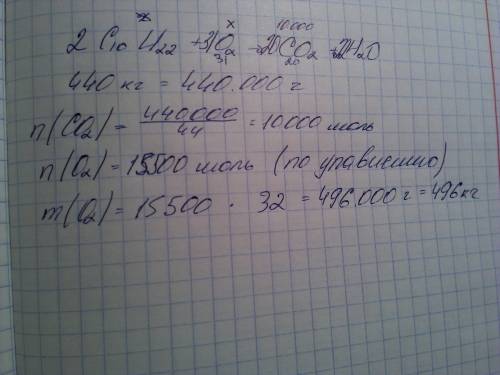 x 10.000
2 C₁₀H₂₂ + 31O₂ → 20CO₂ + 22H₂O
31 20
440 кг = 440.000 г
n(CO₂) = 440000/44 = 10000 моль
n(O₂) = 15500 моль (по уравнению)
m(O₂) = 15500 · 32 = 496.000 г = 496 кг